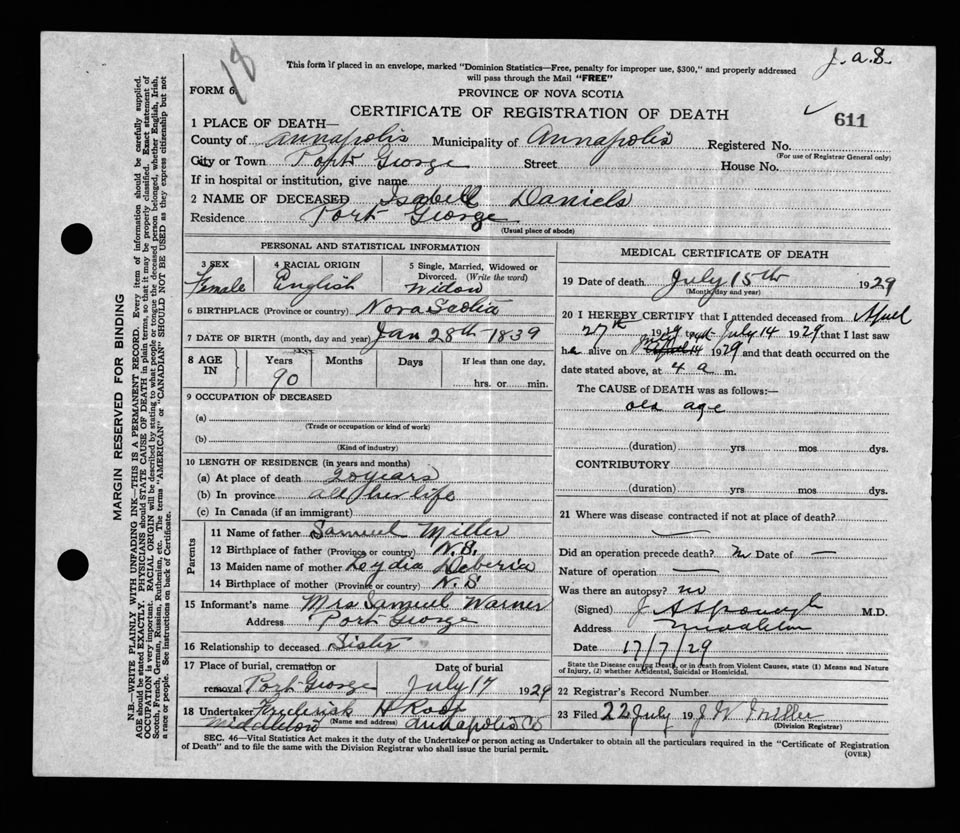 18
J. A. S.
This form if placed in an envelope, marked "Dominion Statistics—Free, penalty for improper use, $300," and properly addressed
will pass through the Mail "FREE"
FORM 6
PROVINCE OF NOVA SCOTIA
CERTIFICATE OF REGISTRATION OF DEATH
611
1 PLACE OF DEATH—
County of Annapolis Municipality of Annapolis Registered No.
(For use of Registrar General only)
City or Town Port George Street House No.
If in hospital or institution, give name
2 NAME OF DECEASED Isabell Daniels
Residence Port George
(Usual place of abode)
PERSONAL AND STATISTICAL INFORMATION
3 SEX
Female
4 RACIAL ORIGIN
English
5 Single, Married, Widowed or
Divorced. (Write the word)
Widow
6 BIRTHPLACE (Province or country) Nova Scotia
7 DATE OF BIRTH (month, day and year) Jan 28th 1839
8 AGE IN
Years Months Days If less than one day,
90 hrs. or min.
9 OCCUPATION OF DECEASED
(a)
(Trade or occupation or kind of work)
(b)
(Kind of industry)
10 LENGTH OF RESIDENCE (in years and months)
(a) At place of death 20 years
(b) In province all her life
(c) In Canada (if an immigrant)
Parents
11 Name of father Samuel Miller
12 Birthplace of father (Province or country) N.S.
13 Maiden name of mother Leydia
14 Birthplace of mother (Province or country) N.S
15 Informant's name Mrs Samuel Warner
Address Port George
16 Relationship to deceased Sister
17 Place of burial, cremation or
removal Port George
Date of burial
July 17 1929
18 Undertaker H Roop
Middleton (Name and address) Annapolis Co
MEDICAL CERTIFICATE OF DEATH
19 Date of death July 15th 1929
(Month, day and year)
20 I HEREBY CERTIFY that I attended deceased from April
27th 1929 to July 14 1929 that I last saw
h alive on July 14 1929 and that death occurred on the
date stated above, at 4 a m.
The CAUSE of DEATH was as follows:—
old age
(duration) yrs mos dys.
CONTRIBUTORY
(duration) yrs mos dys.
21 Where was disease contracted if not at place of death?
Did an operation precede death? no Date of —
Nature of operation —
Was there an autopsy? no
(Signed) M.D.
Address Middleton
Date 17/7/29
State the Disease causing Death, or in death from Violent Causes, state (1) Means and Nature
of Injury, (2) whether Accidental, Suicidal or Homicidal.
22 Registrar's Record Number
23 Filed 22 July 19 J W Miller
(Division Registrar)
SEC. 46—Vital Statistics Act makes it the duty of the Undertaker or person acting as Undertaker to obtain all the particulars required in the "Certificate of Registration
of Death" and to file the same with the Division Registrar who shall issue the burial permit.
(OVER)
MARGIN RESERVED FOR BINDING
N.B.—WRITE PLAINLY WITH UNFADING INK—THIS IS A PERMANENT RECORD. Every item of information should be carefully supplied.
AGE should be stated EXACTLY. PHYSICIANS should STATE CAUSE OF DEATH in plain terms, so that it may be properly classified. Exact statement of
OCCUPATION is very important. RACIAL ORIGIN will be described by stating to what people or tongue the deceased person belonged, whether English, Irish,
Scotch, French, German, Russian, Ruthenian, etc. The terms "AMERICAN" or "CANADIAN" SHOULD NOT BE USED as they express citizenship but not
a race or people. See instructions on back of Certificate.